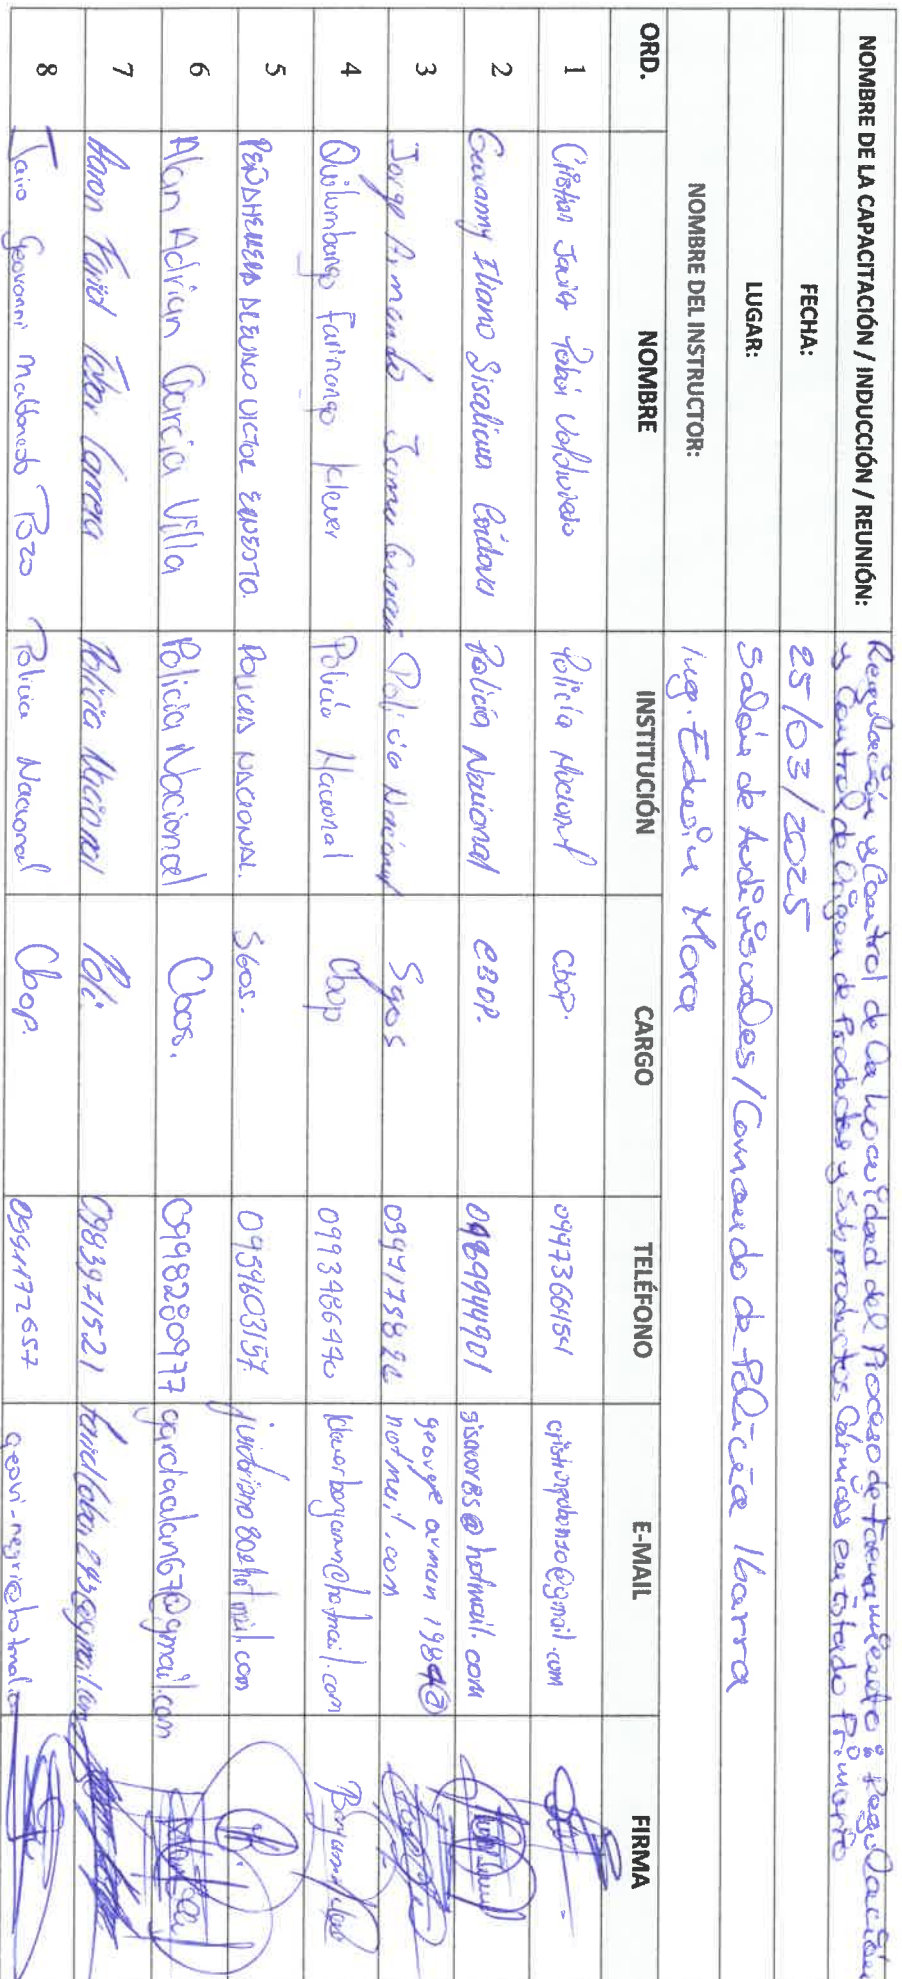 NOMBRE DE LA CAPACITACIÓN / INDUCCIÓN / REUNIÓN: Regulación y Control de la Inocuidad del Proceso de Faenamiento: Regulación
y Control de Origen de Productos y Subproductos Cárnicos en estado Primario
FECHA: 25/03/2025
LUGAR: Salón de Audiovisuales/Comando de Policía Ibarra
NOMBRE DEL INSTRUCTOR: Ing. Edwin Mora
ORD. NOMBRE INSTITUCIÓN CARGO TELÉFONO E-MAIL FIRMA
1 Cristian Javier Policía Nacional Cbop. cristianpabon20@gmail.com
2 Geovanny Iliano Sisalima Córdova Policía Nacional CBOP. 0969944901 sisacor85@hotmail.com
3 Jorge Armando Policía Nacional Sgos george arman 1984@
hotmail.com
4 Quilumbango Farinango Klever Policía Nacional Cbop 0993486440 kleverbenjamin@hotmail.com
5 VICTOR ERNESTO. POLICIA NACIONAL. SGOS. 0959603157
6 Alan Adrian Garcia Villa Policia Nacional Cbos. 0998280977 garciaalan67@gmail.com
7 Aaron Farid Tobar Carrera Policía Nacional Poli. 0983971521 faridtobar293@gmail.com
8 Jairo Geovanni Maldonado Pozo Policia Nacional Cbop. geovi-negri@hotmail.